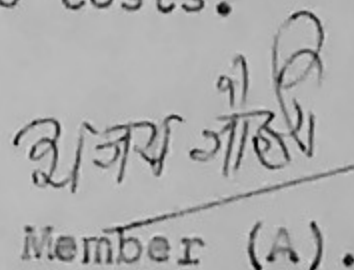 costs.
अजय
Member (A).